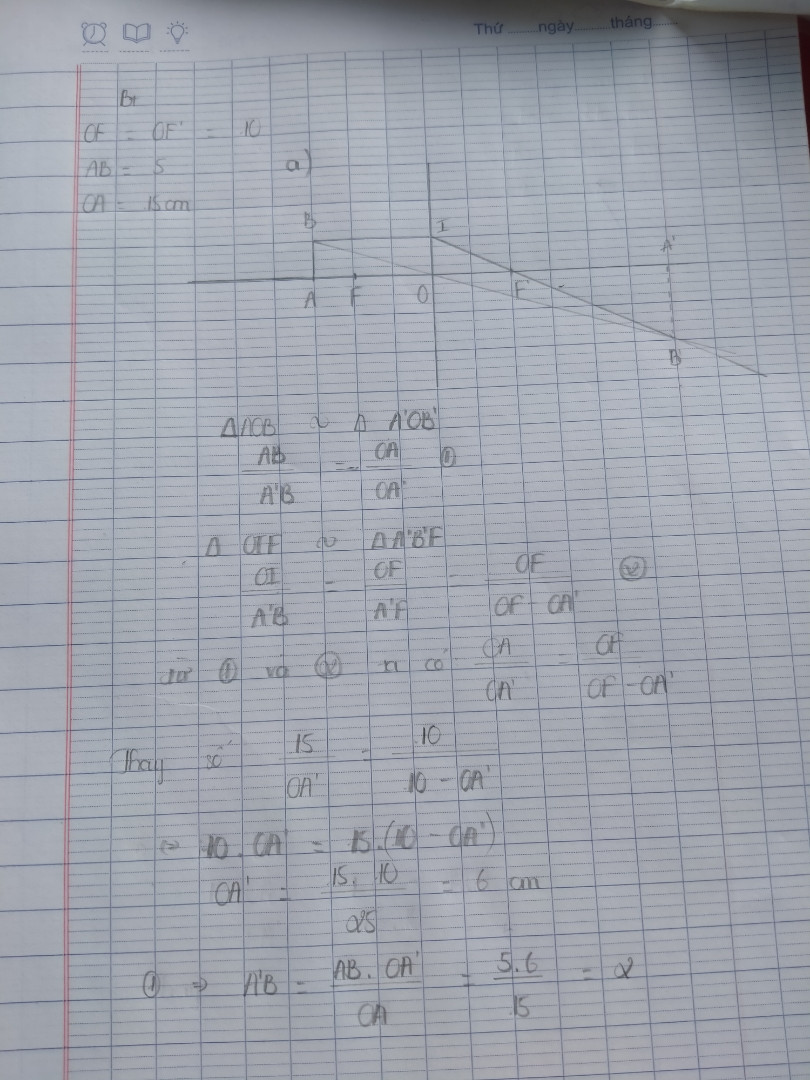 Thứ ngày tháng
B1
OF = OF' = 10
AB = 5 a)
OA = 15 cm
B I A'
A F O F' B'
ΔAOB ~ Δ A'OB'
AB/A'B = OA/OA' ①
Δ OIF ~ ΔA'B'F
OI/A'B = OF/A'F = OF/OF - OA' ②
từ ① và ② có OA/OA' = OF/OF - OA'
Thay số 15/OA' = 10/10 - OA'
⇔ 10. OA' = 15.(10 - OA')
OA' = 15. 10/25 = 6 cm
① ⇒ A'B = AB. OA'/OA = 5.6/15 = 2